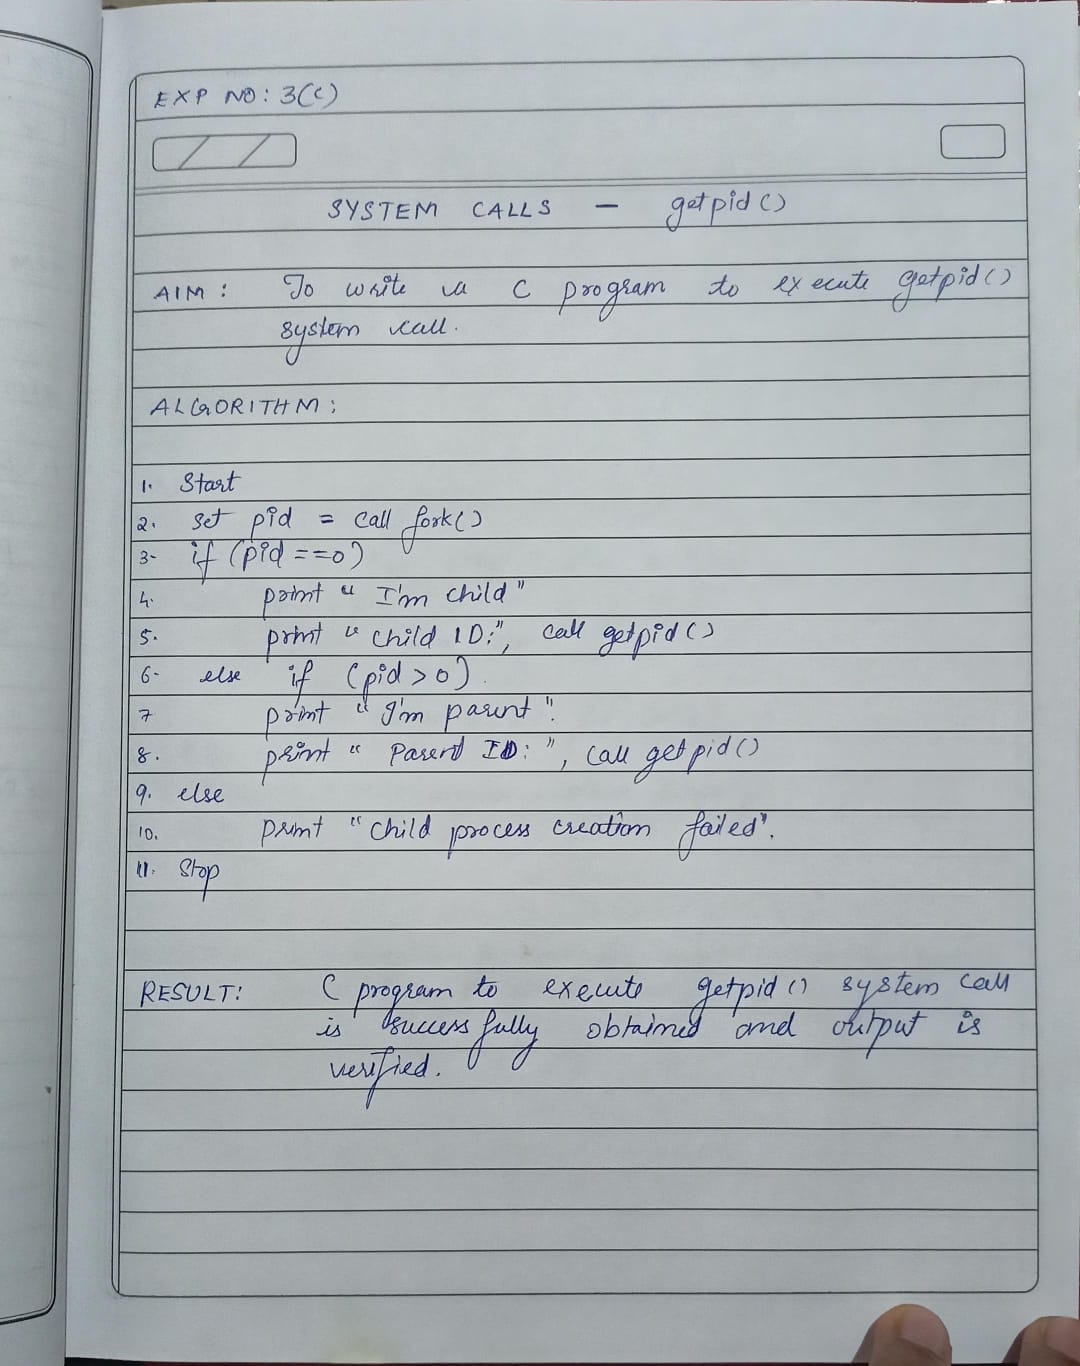 EXP NO: 3(C)
SYSTEM CALLS - getpid()
AIM: To write a C program to execute getpid()
system call.
ALGORITHM:
1. Start
2. set pid = call fork()
3- if (pid ==0)
4. print "I'm child"
5. print "child ID:", call getpid()
6- else if (pid >0)
7 print "I'm parent".
8. print "Parent ID:", call getpid()
9. else
10. print "child process creation failed".
11. Stop
RESULT: C program to execute getpid() system call
is successfully obtained and output is
verified.